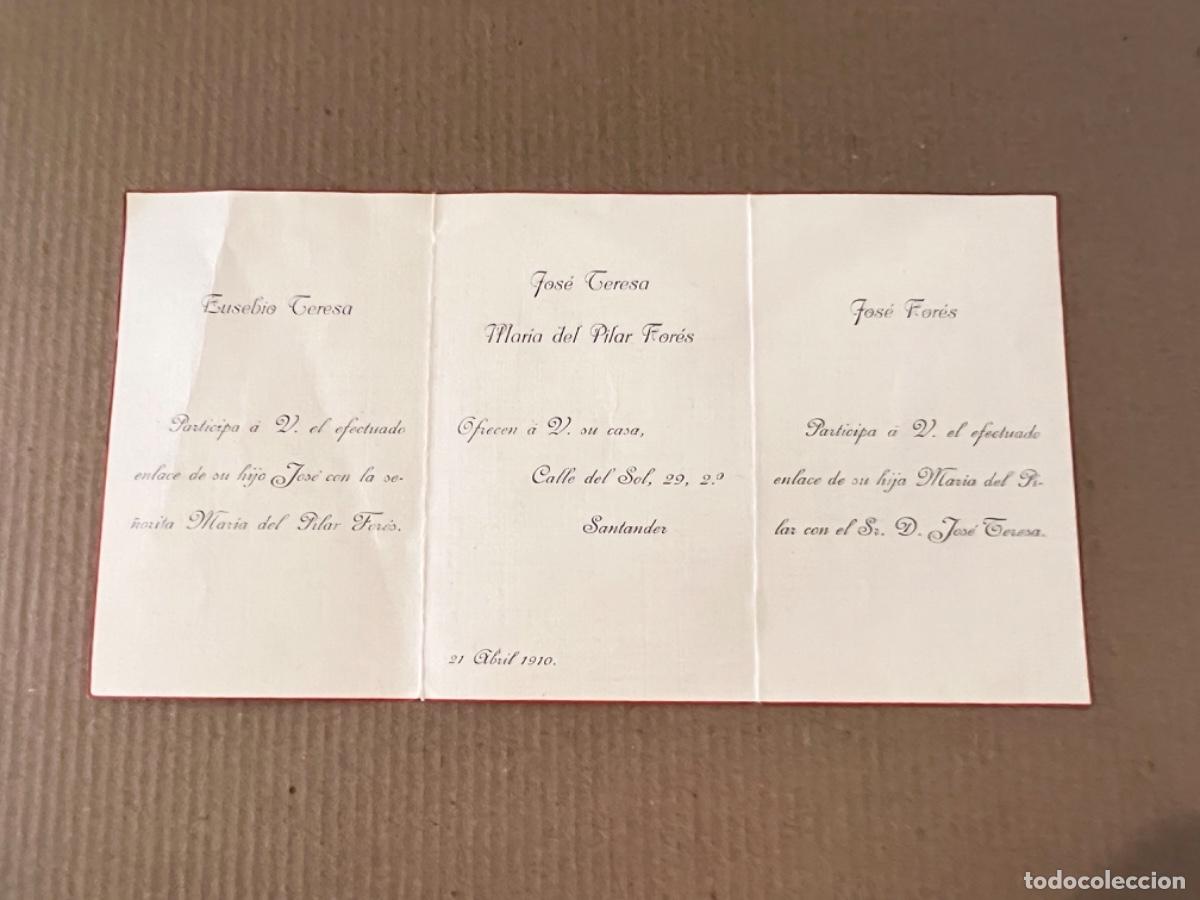 Eusebio Teresa
Participa á V. el efectuado
enlace de su hijo José con la se-
ñorita María del Pilar Forés.
José Teresa
María del Pilar Forés
Ofrecen á V. su casa,
Calle del Sol, 29, 2.º
Santander
21 Abril 1910.
José Forés
Participa á V. el efectuado
enlace de su hija María del Pi-
lar con el Sr. D. José Teresa.
todocoleccion